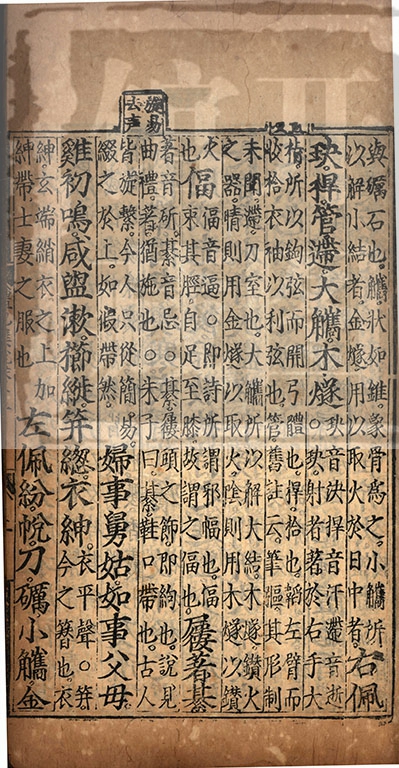 旋易
去声
與礪石也觿狀如錐象骨爲之小觿所
以解小結者金燧用以取火於日中者
右佩
玦捍管遰大觿木燧
玦音決捍音汗遰音逝
○玦射者著於右手大
指所以鉤弦而開弓體也捍拾也韜左臂而
收拾衣袖以利弦也管舊註云筆彄其形制
未聞遰刀室也大觿所以解大結木燧鑽火
之器晴則用金燧以取火陰則用木燧以鑽
火
也
偪
偪音逼○即詩所謂邪幅也偪
束其脛自足至膝故謂之偪也
屨著綦
著音斫綦音忌○綦屨頭之飾即絇也說見
曲禮著猶施也○朱子曰綦鞋口帶也古人
皆旋繫今人只從簡易
綴之於上如假帶然
婦事舅姑如事父毋
雞初鳴咸盥漱櫛縰笄緫衣紳
衣平聲○笄
今之簪也衣
紳玄端綃衣之上加
紳帶士妻之服也
左佩紛帨刀礪小觿金